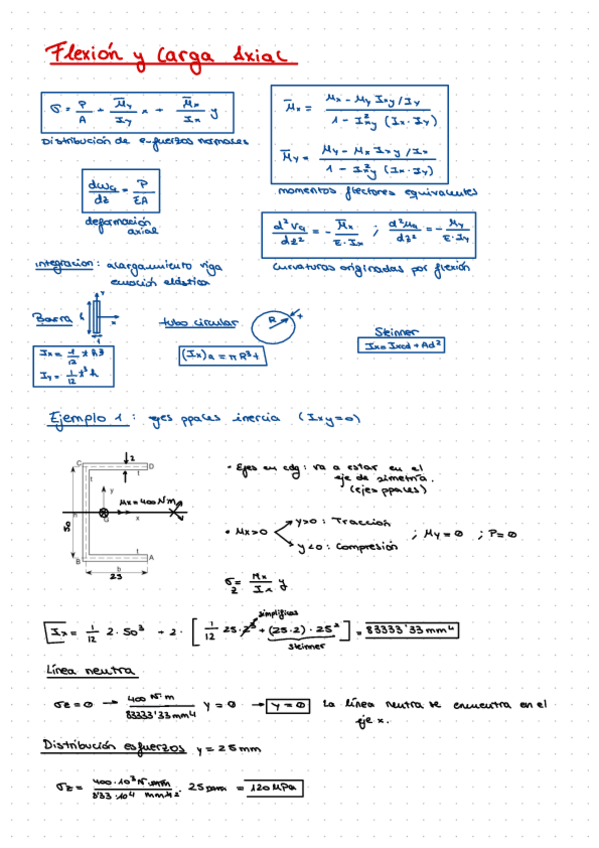 Flexión y Carga Axial
σ = P/A + M̄y/Iy x + M̄x/Ix y
Distribución de esfuerzos normales
M̄x = Mx - My Ixy/Iy / 1 - I²xy (Ix·Iy)
M̄y = My - Mx Ixy/Ix / 1 - I²xy (Ix·Iy)
momentos flectores equivalentes
dωg/dz = P/EA
deformación
axial
d²vg/dz² = - M̄x/E·Ix ; d²ug/dz² = - My/E·Iy
curvaturas originadas por flexión
integración : alargamiento viga
ecuación elástica
Barra h
y
x
t
Ix = 1/12 t h3
Iy = 1/12 t³ h
tubo circular
R
t
(Ix)a = π R³t
Steiner
Ix = Ixcd + Ad²
Ejemplo 1 : ejes ppales inercia (Ixy=0)
C
2
D
t
t
y
Mx = 400 N m
G
x
50
t
B
A
b
25
• Ejes en cdg : va a estar en el
eje de simetría.
(ejes ppales)
• Mx>0
y>0 : Tracción
y<0 : Compresión
; My = 0 ; P = 0
σz = Mx/Ix y
simplificas
Ix = 1/12 2·50³ + 2· [ 1/12 25·2³ + (25·2)·25² ] = 83333'33 mm4
Steiner
Línea neutra
σz = 0 → 400 N·m / 83333'33 mm4 y = 0 → y = 0 La línea neutra se encuentra en el
eje x.
Distribución esfuerzos y = 25 mm
σz = 400·10³ N·mm / 8'33·10⁴ mm4 · 25 mm = 120 MPa